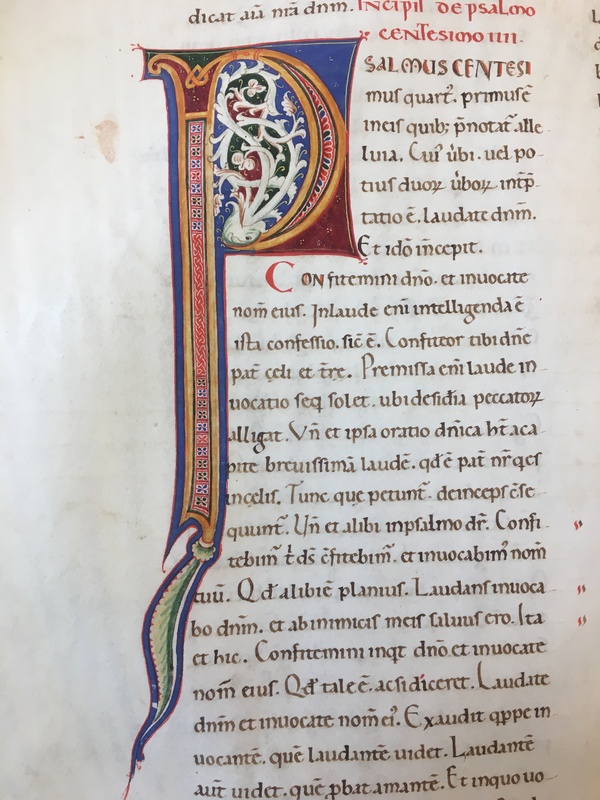 dicat aīa mīa dnm. INCIPIT de psalmo
CENTESIMO IIII.
PSALMUS CENTESI
mus quart᷒. primus ē
in eis quib; p̄notat̄ alle
luia. Cui᷒ ūbi. uel po-
tius duoꝝ ūboꝝ int̄p̄-
tatio ē. laudate dnm.
Et idō incepit.
CONfitemini dn̄o. et inuocate
nom̄ eius. In laude eni intelligenda ē
ista confessio. sic̄ ē. Confiteor tibi dn̄e
pat̄ cęli et t̄rę. Premissa em̄ laude in
uocatio seq̄ solet. ubi desidia peccatoꝝ
alligat. Vn̄ et ipsa oratio dn̄ica h̄t a ca
pite breuissimā laudē. qd̄ ē pat̄ nr̄ q̄ es
in cęlis. Tunc que petunt̄. deinceps c̄se-
quunt̄. Un̄ et alibi in psalmo dr̄. Confi-
tebim᷒ t̄ ds̄ c̄fitebim᷒. et inuocabim᷒ nom̄
tuū. Qd̄ alibi ē planius. Laudans inuoca
bo dnm̄. et ab inimicis meis saluus ero. Ita
et hic. Confitemini inqt̄ dn̄o et inuocate
nom̄ eius. Qd̄ tale ē. ac si diceret. Laudate
dnm̄ et inuocate nom̄ ei᷒. Exaudit q̄ppe in
uocantē. quē laudantē uidet. Laudantē
aut̄ uidet. quē p̄bat amantē. Et in quo uo-